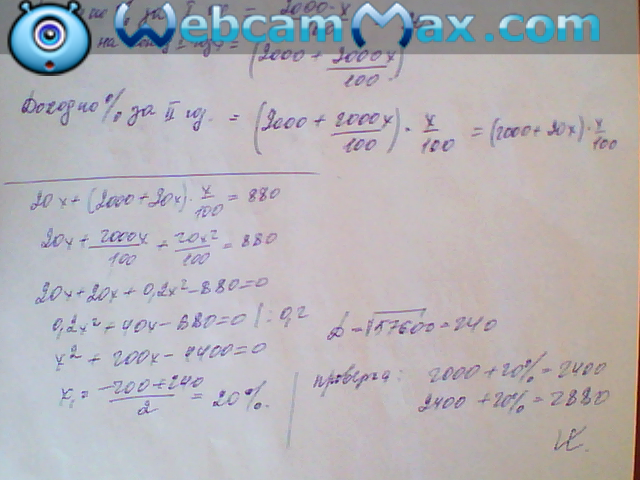 WebcamMax.com
за I год = 2000·x
= (2000 + 2000x/100)
Доход по % за II год. = (2000 + 2000x/100) · x/100 = (2000 + 20x) · x/100
20x + (2000 + 20x) · x/100 = 880
20x + 2000x/100 + 20x²/100 = 880
20x + 20x + 0,2x² - 880 = 0
0,2x² + 40x - 880 = 0 | : 0,2
x² + 200x - 4400 = 0
x₁ = -200 + 240/2 = 20%.
D = √57600 = 240
проверка: 2000 + 20% = 2400
2400 + 20% = 2880